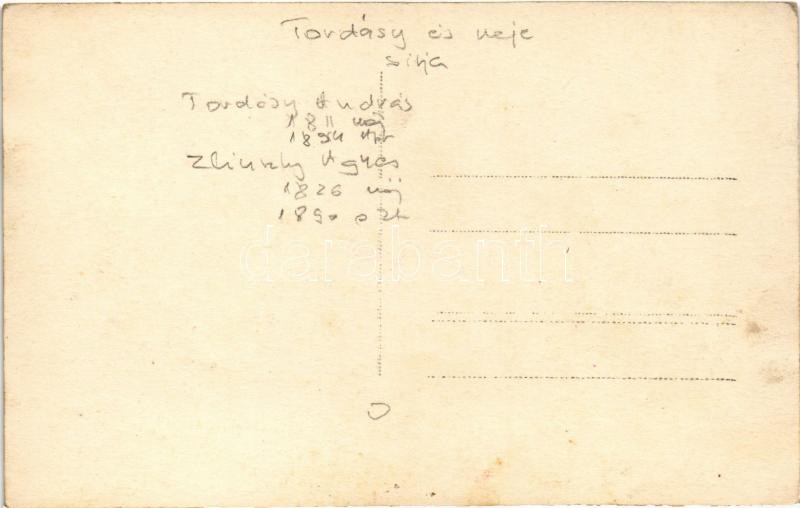 Tordásy és neje
sírja
Tordásy András
1811 máj
1894 Apr
Zlinszky Agnes
1826 máj
1890 okt
darabanth